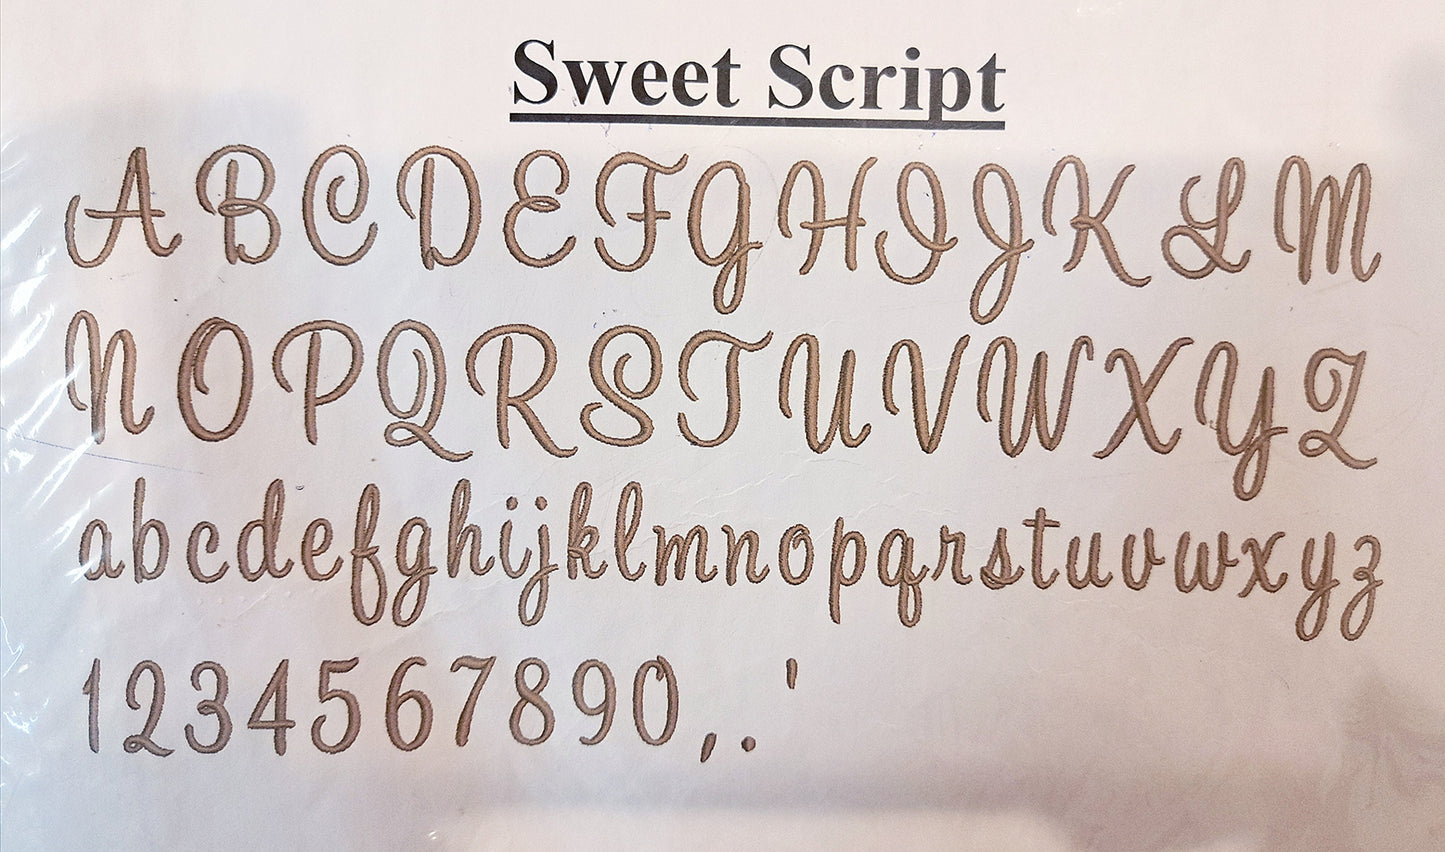 Sweet Script
ABCDEFGHIJKLM
NOPQRSTUVWXYZ
abcdefghijklmnopqrstuvwxyz
1234567890,.'